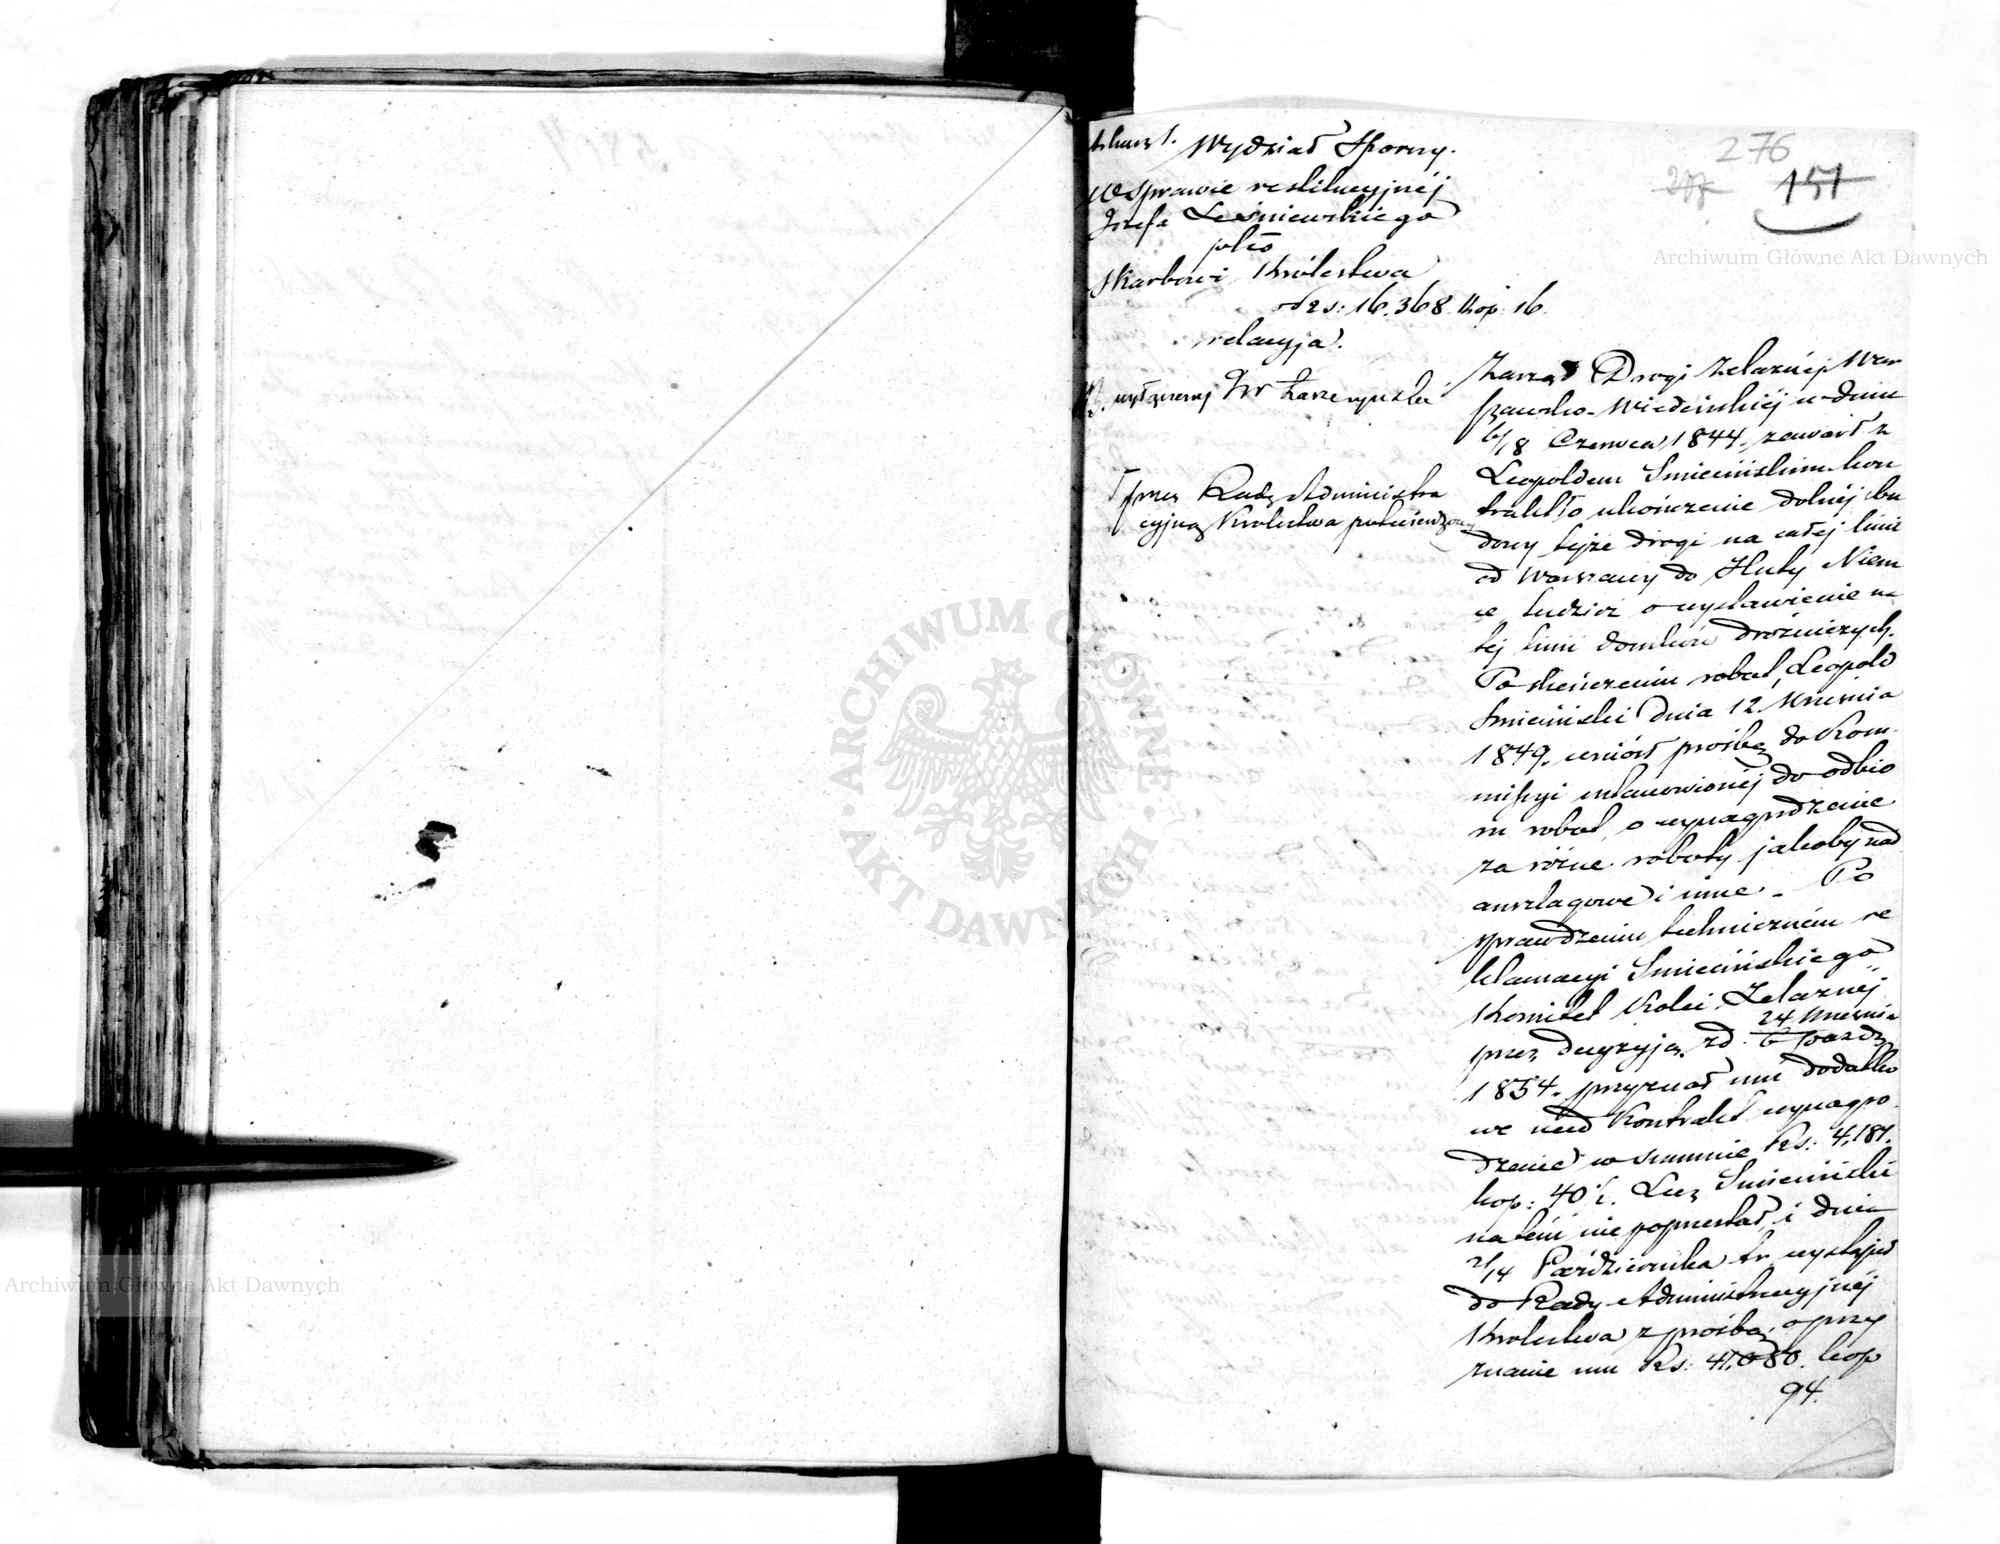 276
277 151
Arkusz 1. Wydział Sporny.
W sprawie restitucyjnéj
Józefa Leśniewskiego
plto
Skarbowi Królestwa
o Rs: 16.368 Kop. 16.
relacyja.
przez Radę Administra
cyjną Królestwa potwierdzony
Zarząd Drogi Żelaznéj War
szawsko-Wiedeńskiéj w dniu
6/18 Czerwca 1844. zawarł z
Leopoldem Smiecińskim kon
trakt o ukończenie dolnéj bu
dowy tejże drogi na całej linii
od Warszawy do Huty Niem
ce tudzież o wystawienie na
tej linii domków drożniczych.
Po skończeniu robot, Leopold
Smieciński dnia 12. Września
1849. wniósł prośbę do Kom
missyi ustanowionéj do odbio
ru robot, o wynagrodzenie
za różne roboty jakoby nad
anszlagowe i inne. Po
sprawdzeniu techniczném re
klamacyi Smiecińskiego
Komitet Kolei Żelaznéj
przez decyzyją zd. 24 Września
6 Paźdz
1854. przyznał mu dodatko
we nad Kontrakt wynagro
dzenie w summie Rs: 4,181.
kop: 40½. Lecz Smieciński
na tém nie poprzestał, i dnia
2/14 Października tr. wystąpił
do Rady Administracyjnéj
Królestwa z prośbą, o przy
znanie mu Rs: 41,080. kop
94.
Archiwum Główne Akt Dawnych
ARCHIWUM GŁÓWNE AKT DAWNYCH
Archiwum Główne Akt Dawnych